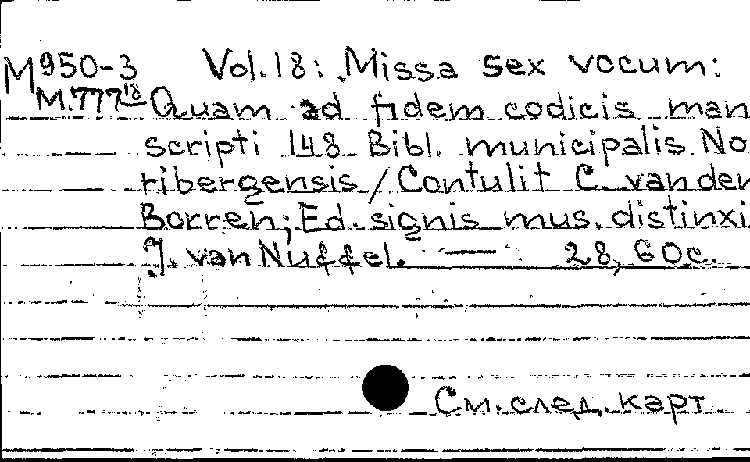 M950-3 Vol. 18: Missa sex vocum:
M.777 18 Quam ad fidem codicis man
scripti 148 Bibl. municipalis No
ribergensis / Contulit C. van den
Borren; Ed. signis mus. distinxi
J. van Nuffel. — 28, 60c.
См. след. карт